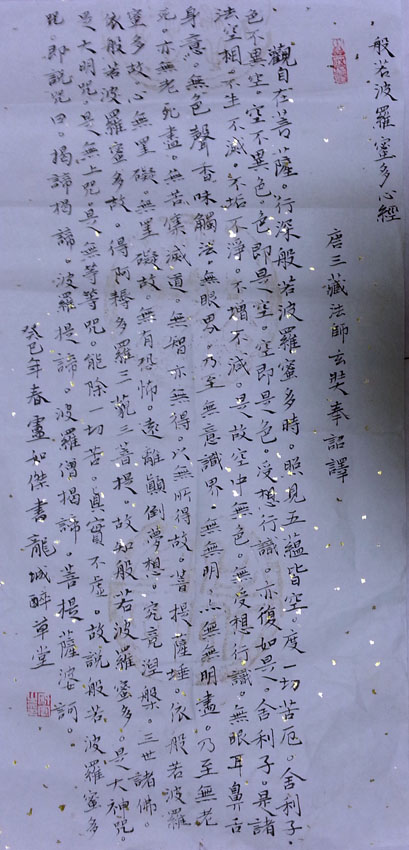 般若波羅蜜多心經
唐三藏法師玄奘奉詔譯
觀自在菩薩。行深般若波羅蜜多時。照見五蘊皆空。度一切苦厄。舍利子。
色不異空。空不異色。色即是空。空即是色。受想行識。亦復如是。舍利子。是諸
法空相。不生不滅。不垢不淨。不增不減。是故空中無色。無受想行識。無眼耳鼻舌
身意。無色聲香味觸法。無眼界。乃至無意識界。無無明。亦無無明盡。乃至無老
死。亦無老死盡。無苦集滅道。無智亦無得。以無所得故。菩提薩埵。依般若波羅
蜜多故。心無罣礙。無罣礙故。無有恐怖。遠離顛倒夢想。究竟涅槃。三世諸佛。
依般若波羅蜜多故。得阿耨多羅三藐三菩提。故知般若波羅蜜多。是大神咒。
是大明咒。是無上咒。是無等等咒。能除一切苦。真實不虛。故說般若波羅蜜多
咒。即說咒曰。揭諦揭諦。波羅揭諦。波羅僧揭諦。菩提薩婆訶。
癸巳年春盧如傑書龍城醉草堂